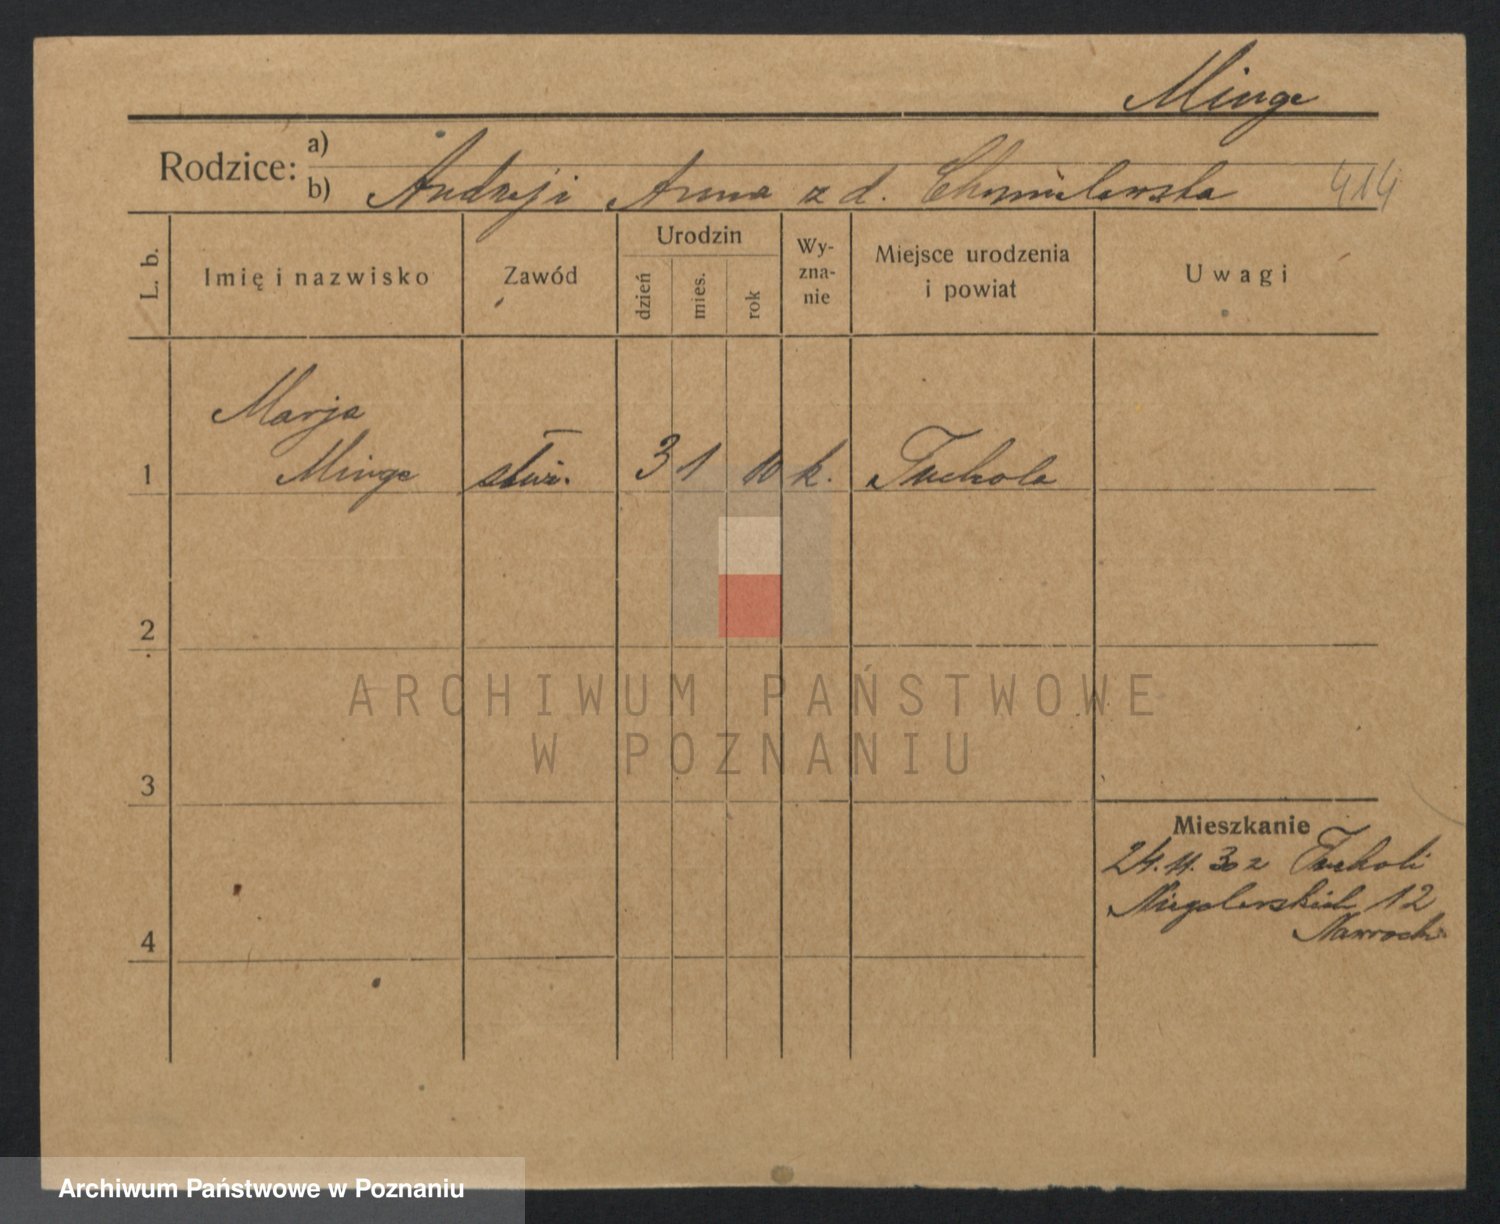 Minge
Rodzice: a)
b) Andrzej i Anna z d. Chmielewska 414
L. b. Imię i nazwisko Zawód Urodzin dzień mies. rok Wy-zna-nie Miejsce urodzenia i powiat Uwagi
Marja
1 Minge służ. 3 1 10 k. Tuchola
2
ARCHIWUM PAŃSTWOWE
W POZNANIU
3
Mieszkanie
24.11.30 z Tucholi
Niegolewskich 12
4
Archiwum Państwowe w Poznaniu